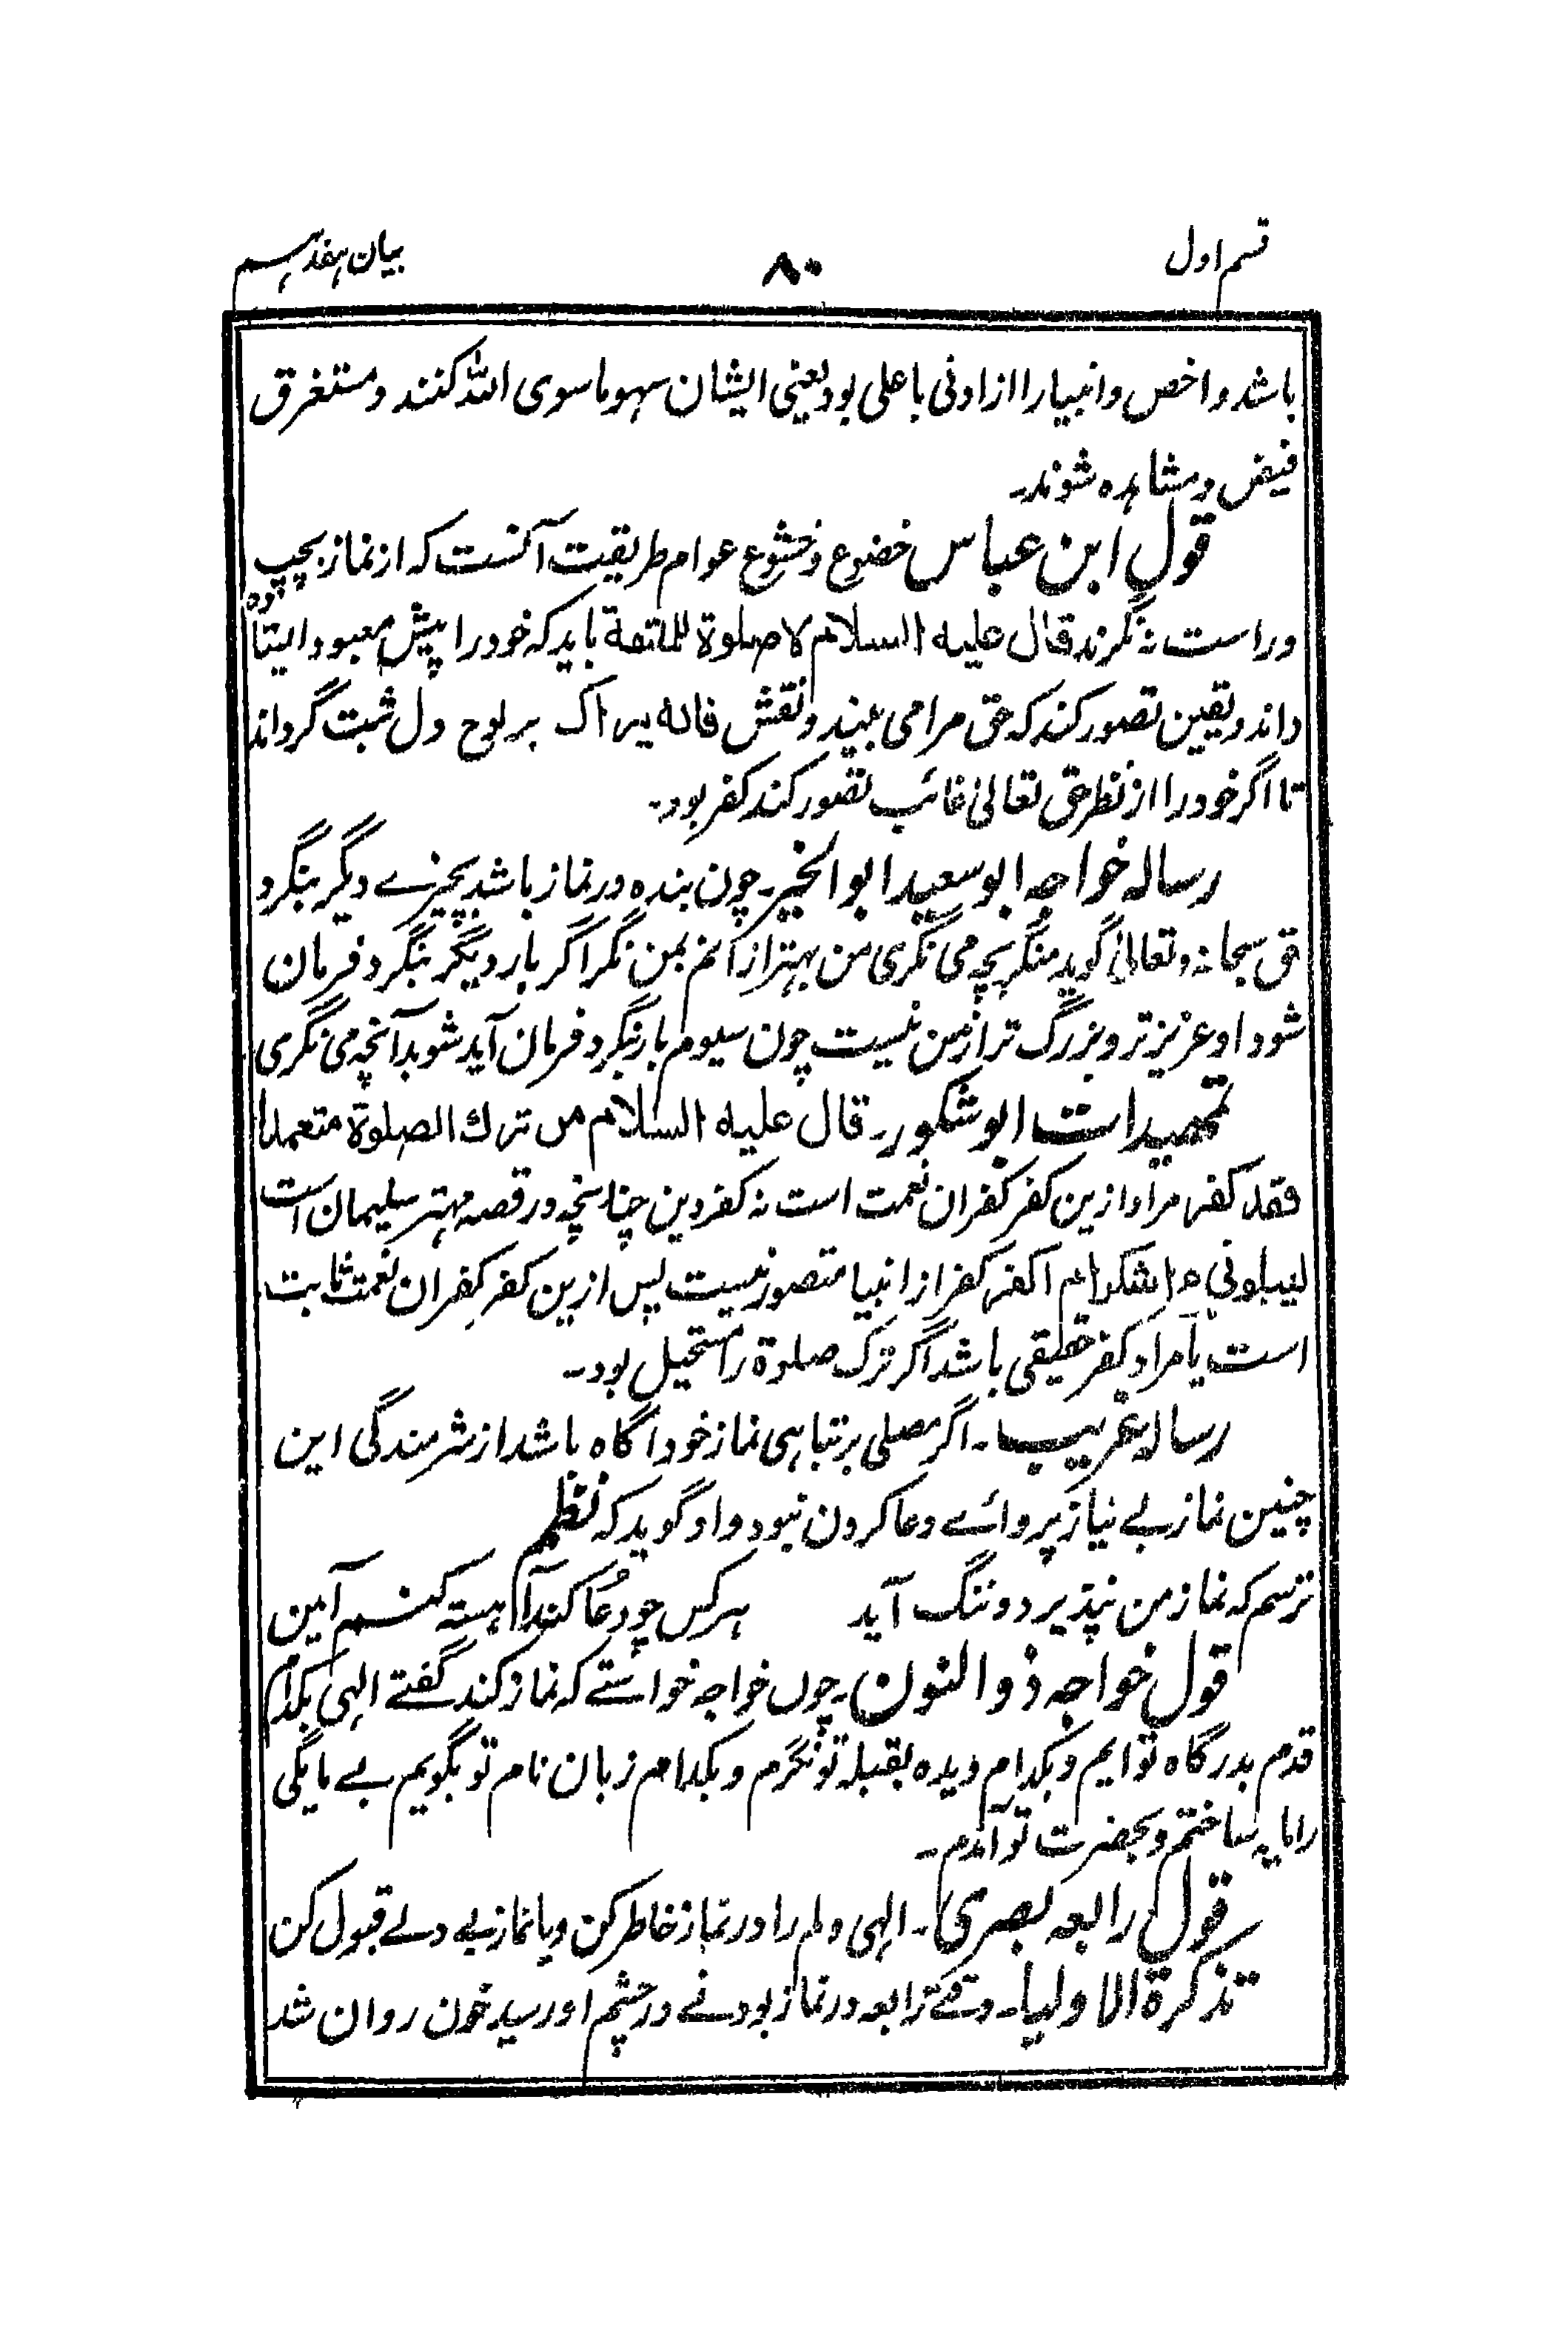 قسم اول
۸۰
بیان ہفدہم
باشد و اخص و انبیا را از ادنی با علی بود یعنی ایشان سهو ما سوی اللہ کنند و مستغرق
فیض و مشاہدہ شوند۔
قول ابن عباس خضوع و خشوع عوام طریقیت آنست کہ از نماز بچپ
و راست نہ نگرند قال علیه السلام لا صلوة للملتفة باید کہ خود را پیش معبود ایستادہ
داند و یقین تصور کند کہ حق مرا می بیند و نقش فانه یراک بر لوح دل ثبت گرداند
تا اگر خود را از نظر حق تعالیٰ غائب تصور کند کفر بود۔
رسالہ خواجہ ابو سعید ابو الخیر۔ چون بندہ در نماز باشد بچیزے دیگر بنگرد
حق سبحانہ و تعالیٰ گوید منگر بچہ می نگری من بہتر از آنم بمن نگر اگر بار دیگر بنگرد فرمان
شود او عزیز تر و بزرگ تر از من نیست چون سیوم بار نگرد فرمان آید شو بدآنچہ می نگری
تمهیدات ابو شکور۔ قال علیه السلام من ترك الصلوة متعمدا
فقد كفر مراد ازین کفر کفران نعمت است نہ کفر دین چنانچہ در قصہ مہتر سلیمان است
لیبلونی ءاشکر ام اکفر کفر از انبیا متصور نیست پس ازین کفر کفران نعمت ثابت
است یا مراد کفر حقیقی باشد اگر ترک صلوة را مستحیل بود۔
رسالہ غریب۔ اگر مصلی بر تباہی نماز خود آگاہ باشد از شرمندگی این
چنین نماز بے نیاز پروائے دعا کردن نبود و او گوید کہ نظم
ترسم کہ نماز من نپذیرد و ننگ آید     ہر کس چو دعا کند آہستہ کنم آمین
قول خواجہ ذو النون۔ چوں خواجہ خواستے کہ نماز کند گفتے الہی بکدام
قدم بدرگاہ تو ایم و بکدام دیدہ بقبلہ تو نگرم و بکدام زبان نام تو بگویم بے مایگی
را مایہ ساختم و بحضرت تو آمدم۔
قول رابعہ بصری۔ الہی دلم را در نماز خاطر کن و یا نماز بے دلے قبول کن
تذکرة الاولیا۔ وقتے رابعہ در نماز بود نے در چشم او رسید خون روان شد